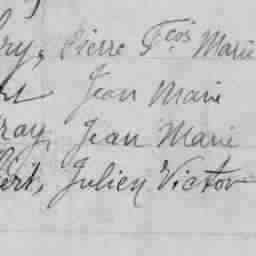 ry, Pierre Fcois Marie
Jean Marie
ray, Jean Marie
bert, Julien Victor